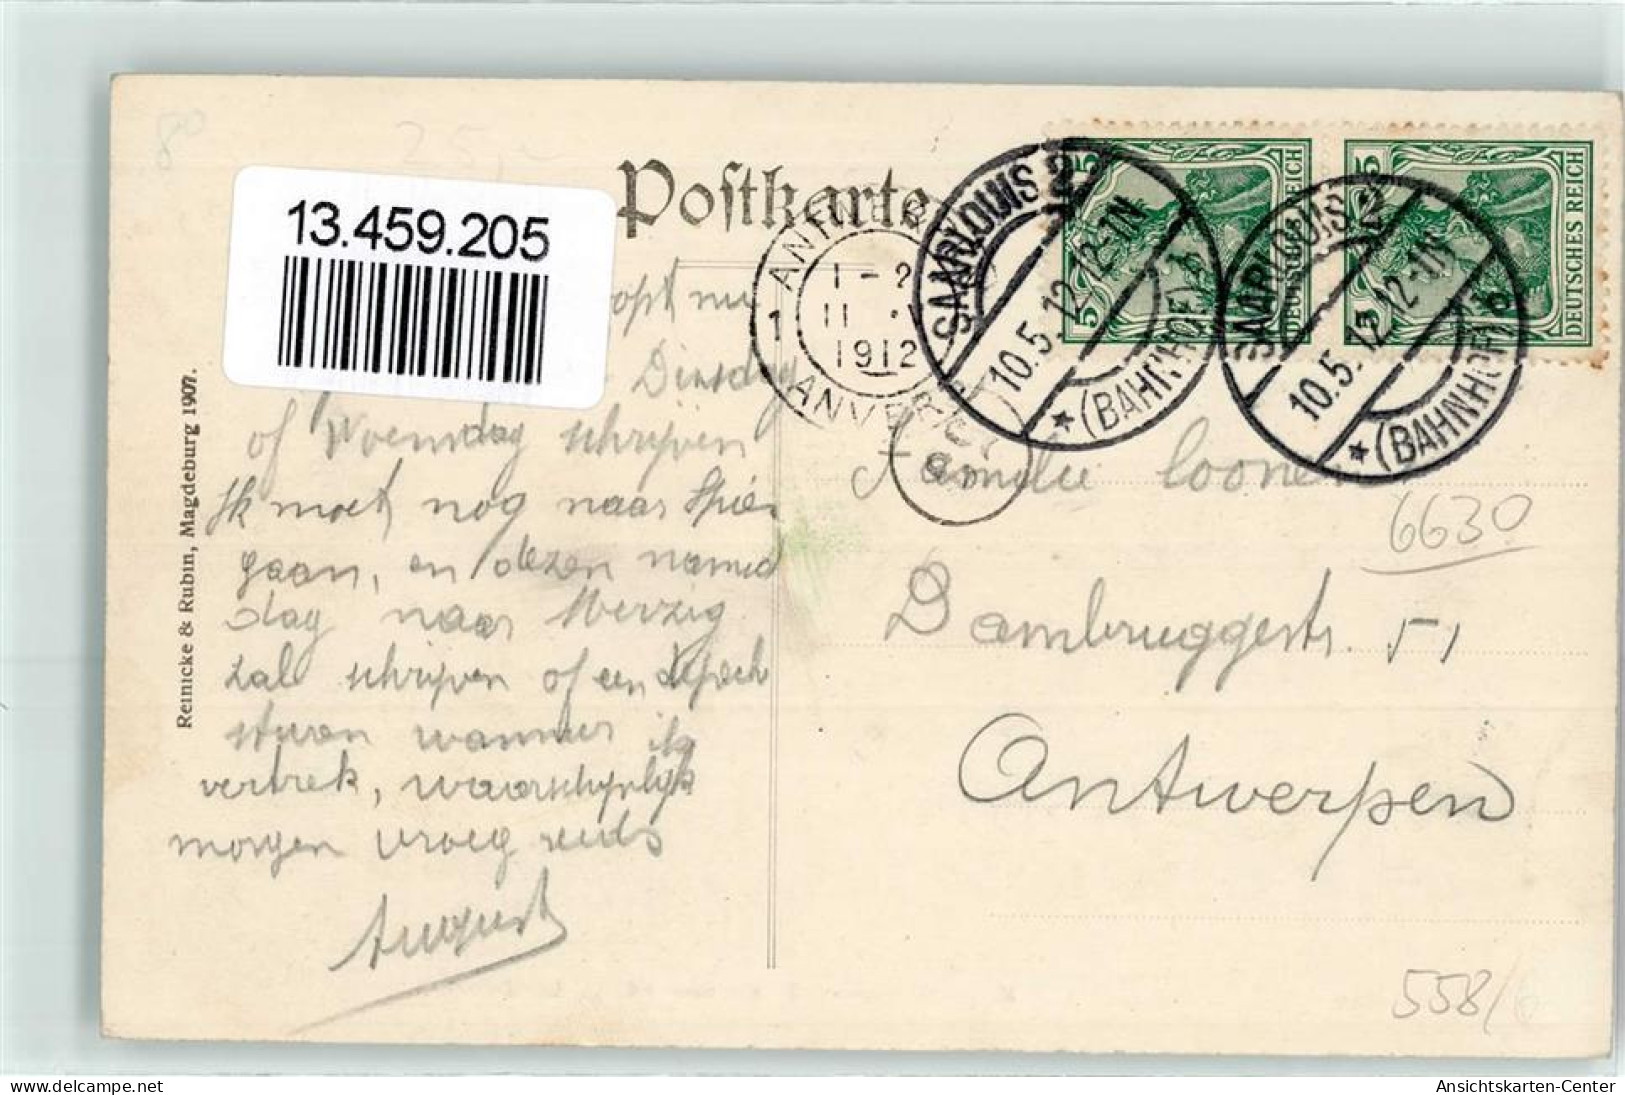 80
25
13.459.205
Postkarte
Reinicke & Rubin, Magdeburg 1907.
ANTWERPEN
1-2
11
1912
1
ANVERS
SAARLOUIS 2
10.5.12.12-1N
* (BAHNHOF) b
DEUTSCHES REICH
5
5
SAARLOUIS 2
10.5.12.12-1N
* (BAHNHOF) b
DEUTSCHES REICH
5
5
nu
Dinsdag
of Woensdag schrijven
Ik moet nog naar Spier
gaan, en dezen namid
dag naar Merzig
zal schrijven of een depech
sturen wanneer ik
vertrek, waarschijnlijk
morgen vroeg reeds
August
Familie Coonen
Dambruggestr. 51
Antwerpen
6630
558/
delcampe.net
Ansichtskarten-Center